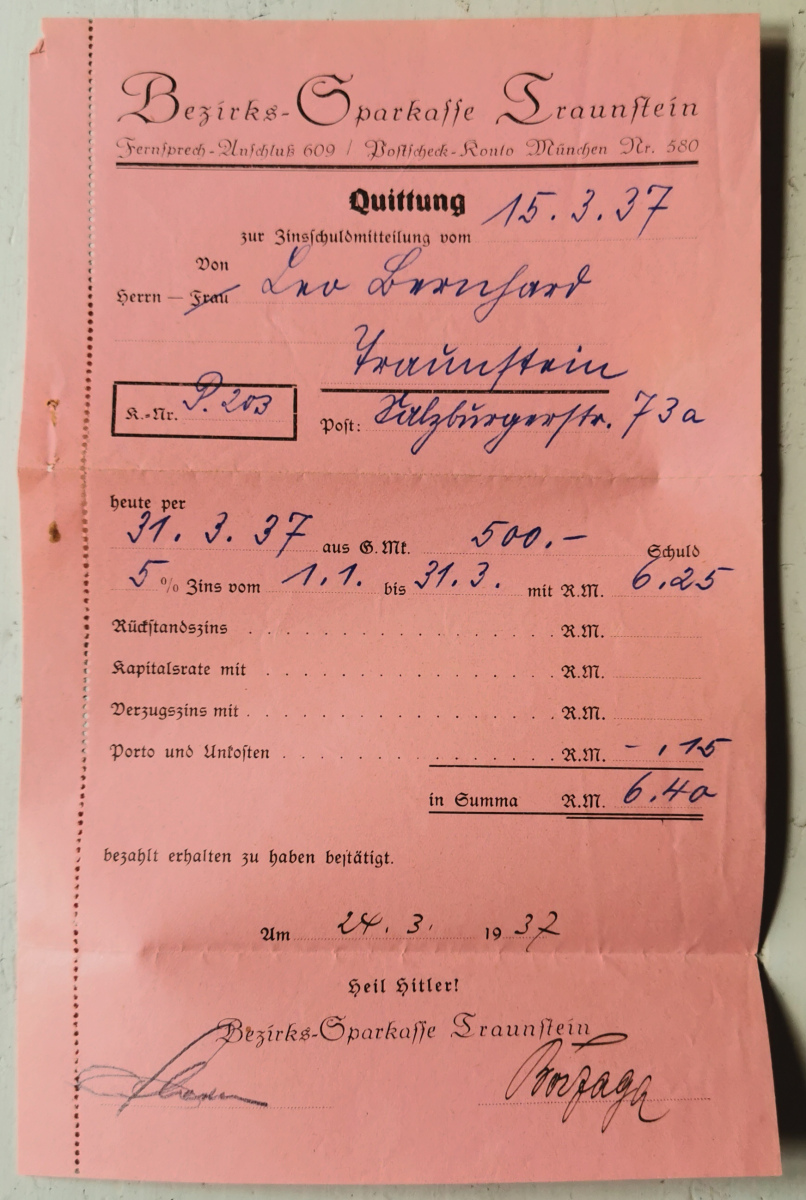 Bezirks-Sparkasse Traunstein
Fernsprech-Anschluß 609 / Postscheck-Konto München Nr. 580
Quittung
zur Zinsschuldmitteilung vom 15.3.37
Von
Herrn — Frau Leo Bernhard
Traunstein
K.-Nr. P. 203
Post: Salzburgerstr. 73a
heute per
31. 3. 37 aus G.Mk. 500.- Schuld
5 % Zins vom 1.1. bis 31.3. mit R.M. 6.25
Rückstandszins . . . . . . . . . . . . . . . . R.M.
Kapitalsrate mit . . . . . . . . . . . . . . . R.M.
Verzugszins mit . . . . . . . . . . . . . . . . R.M.
Porto und Unkosten . . . . . . . . . . . . . . R.M. -.15
in Summa R.M. 6.40
bezahlt erhalten zu haben bestätigt.
Am 24. 3. 1937
Heil Hitler!
Bezirks-Sparkasse Traunstein